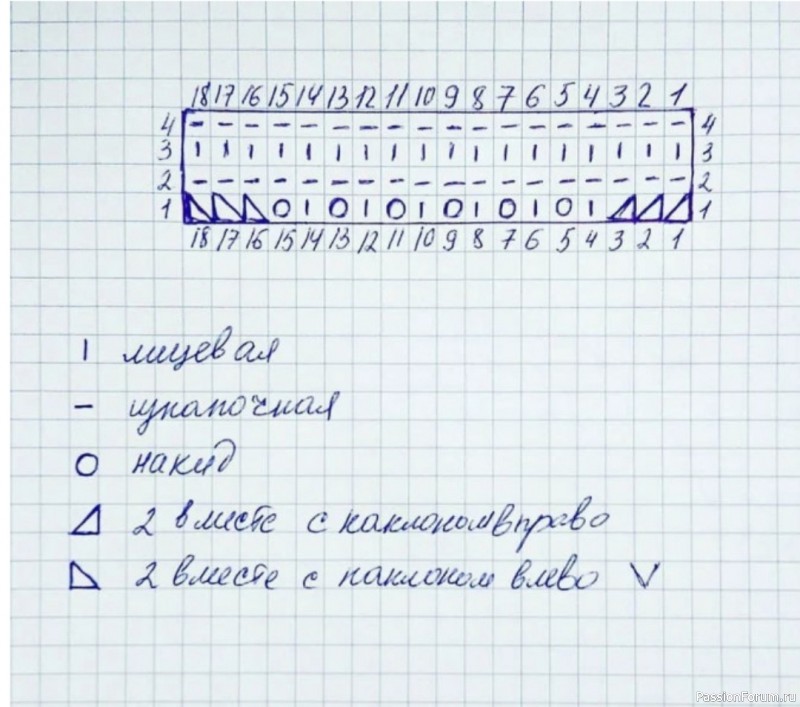 18 17 16 15 14 13 12 11 10 9 8 7 6 5 4 3 2 1
4 - - - - - - - - - - - - - - - - - - 4
3 | | | | | | | | | | | | | | | | | | 3
2 - - - - - - - - - - - - - - - - - - 2
1 ◺ ◺ ◺ O | O | O | O | O | O | ◿ ◿ ◿ 1
18 17 16 15 14 13 12 11 10 9 8 7 6 5 4 3 2 1
| лицевая
- изнаночная
O накид
◿ 2 вместе с наклоном вправо
◺ 2 вместе с наклоном влево V
PassionForum.ru